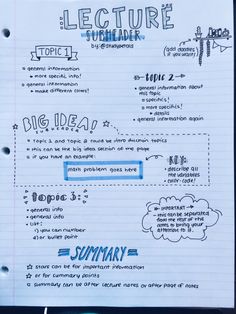 LECTURE
SUBHEADER
by: @studypetals
add doodles
if you want!
TOPIC 1
→ general information
→ more specific info!
→ general information
→ make different colors!
topic 2
→ general information about
this topic
→ specifics!
→ more specifics!
→ details
→ general information again
BIG IDEA!
SUBHEADER
☆ topic 1 and topic 2 would be intro division topics
→ this can be the big idea section of the page
☆ if you have an example:
math problem goes here
KEY:
→ describe all
the variables
→ color-code!
topic 3:
→ general info
→ general info
→ list:
1) you can number
2) or bullet point
IMPORTANT
→ this can be separated
from the rest of
the notes to bring
your attention to it.
SUMMARY
☆ stars can be for important information
☆ or for summary points
☆ summary can be after lecture notes or after page of notes